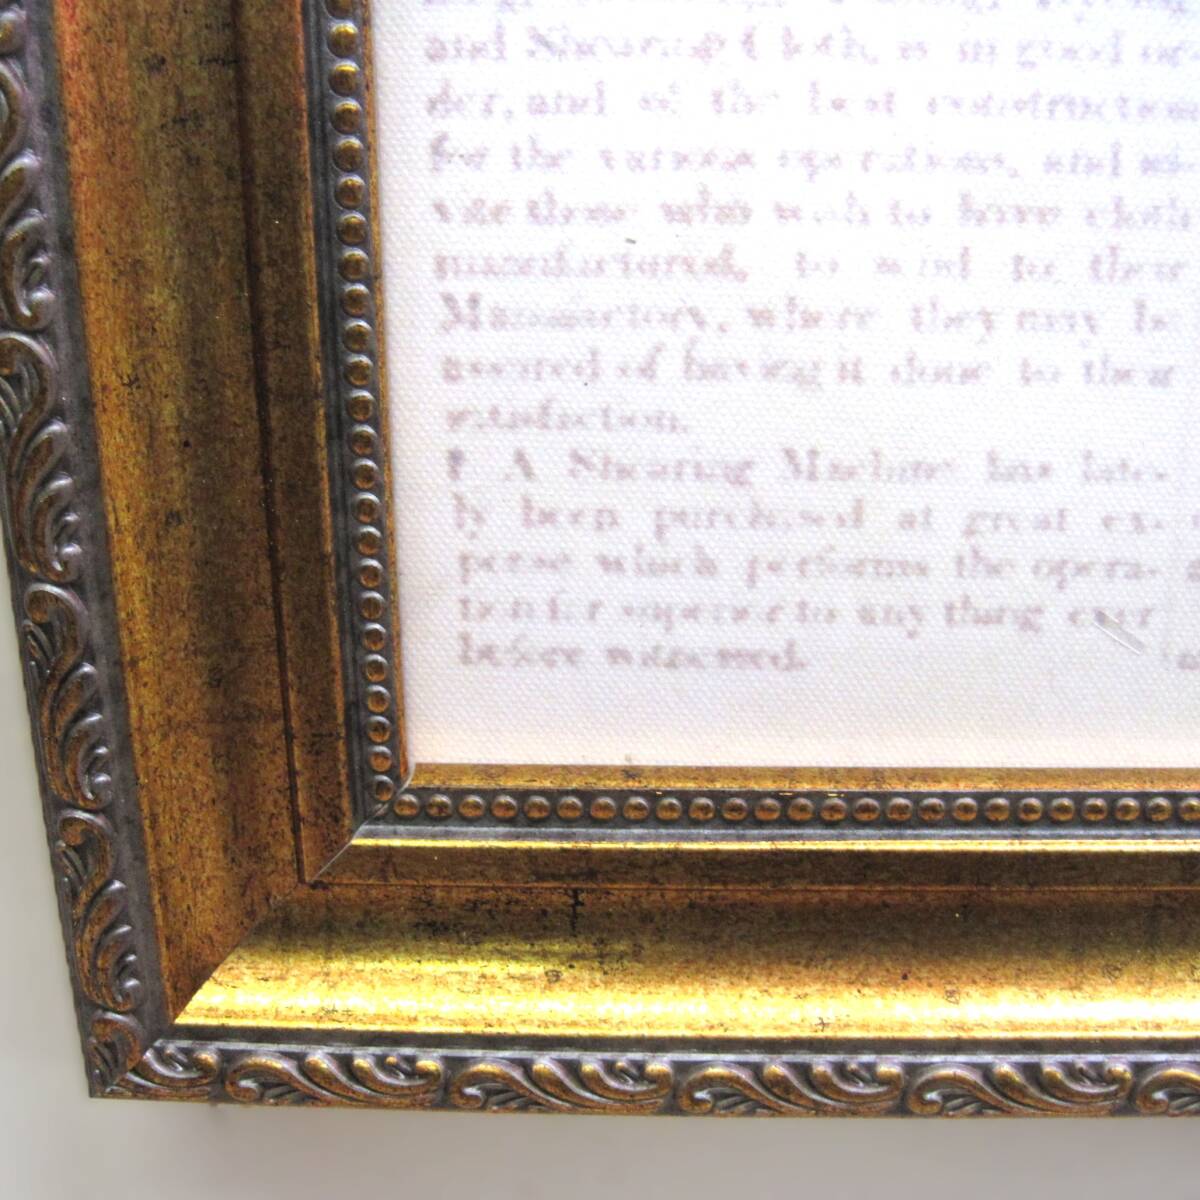 and Shearing Cloth, is in good or-
der, and of the best construction
for the various operations, and
those who wish to have cloth
manufactured, to send to their
Manufactory, where they may be
assured of having it done to their
satisfaction.
A Shearing Machine has late-
ly been purchased at great ex-
pense which performs the opera-
tion far superior to any thing ever
before witnessed.